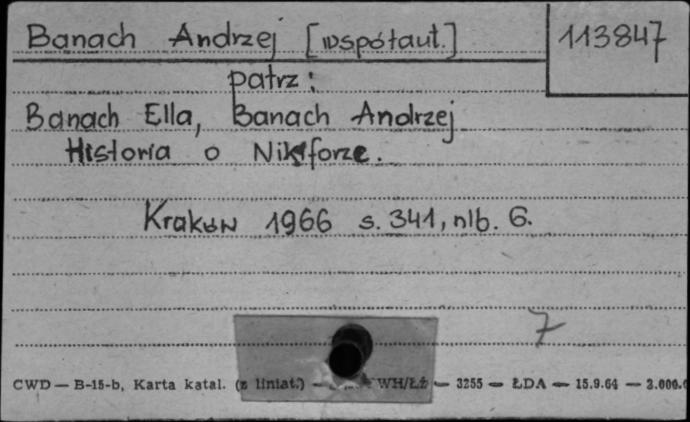 Banach Andrzej [współaut.] 113847
patrz:
Banach Ella, Banach Andrzej
Historia o Nikiforze.
Kraków 1966 s. 341, nlb. 6.
7
CWD — B-15-b, Karta katal. (z liniat.) — WH/Łż — 3255 — ŁDA — 15.9.64 — 2.000.0